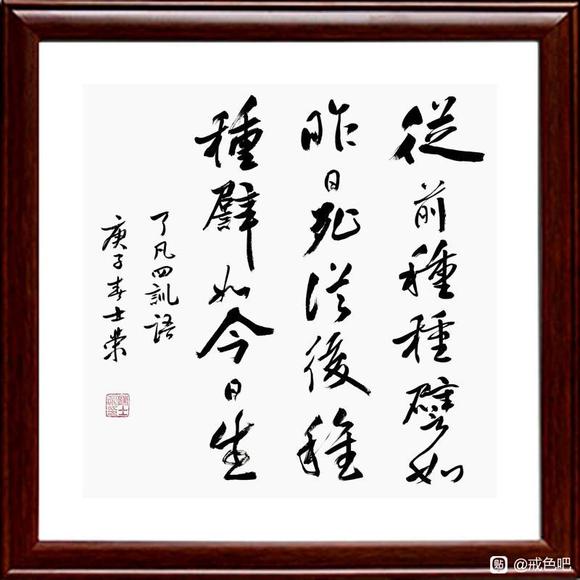 從前種種譬如
昨日死從後種
種譬如今日生
了凡四訓語
庚子春士榮
贴 @戒色吧